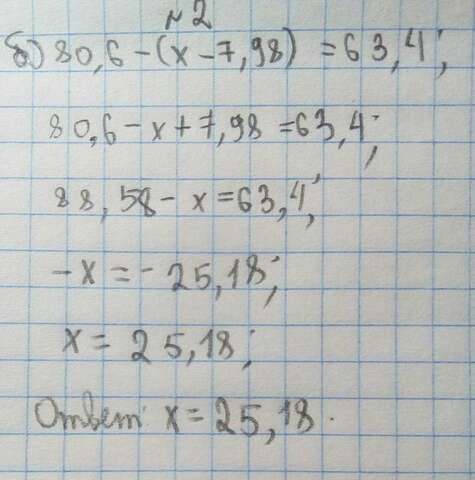 №2
б) 80,6-(x-7,98) =63,4;
80,6-x+7,98=63,4;
88,58-x=63,4;
-x=-25,18;
x=25,18;
Ответ: x=25,18.